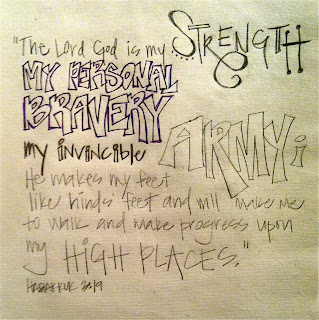 "The Lord God is my STRENGTH
MY PERSONAL
BRAVERY
my invincible ARMY;
He makes my feet
like hinds' feet and will make me
to walk and make progress upon
my HIGH PLACES."
HABAKKUK 3:19